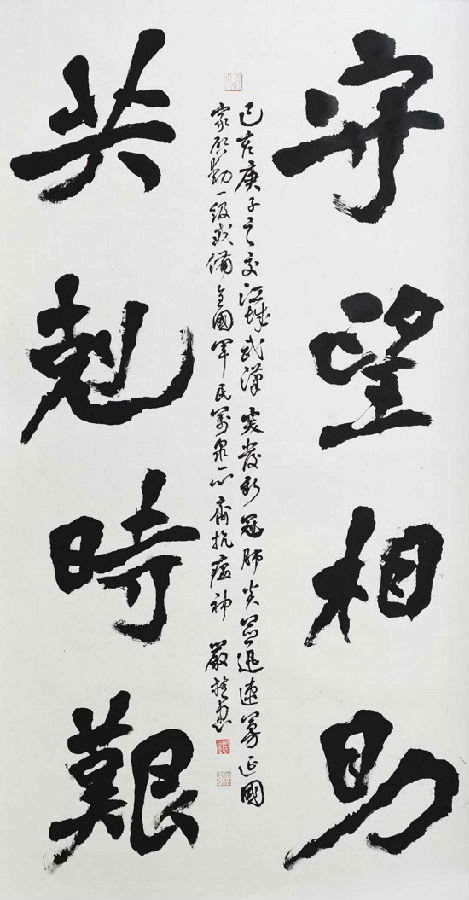 守望相助
共剋時艱
己亥庚子之交江城武漢突發新冠肺炎並迅速蔓延國
家啟動一級戒備全國軍民萬眾一心齊抗瘟神 嚴書